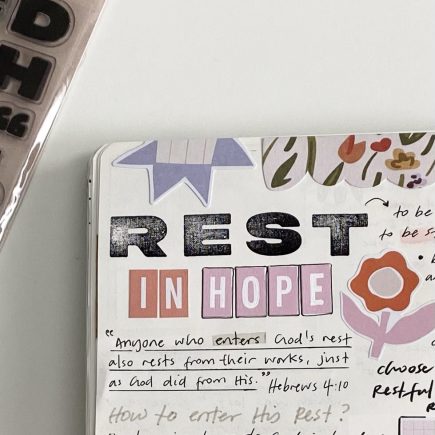 D
H
"
REST
to be
to be s
IN HOPE
"Anyone who enters God's rest
also rests from their works, just
as God did from His." Hebrews 4:10
choose
Restful
How to enter His Rest?